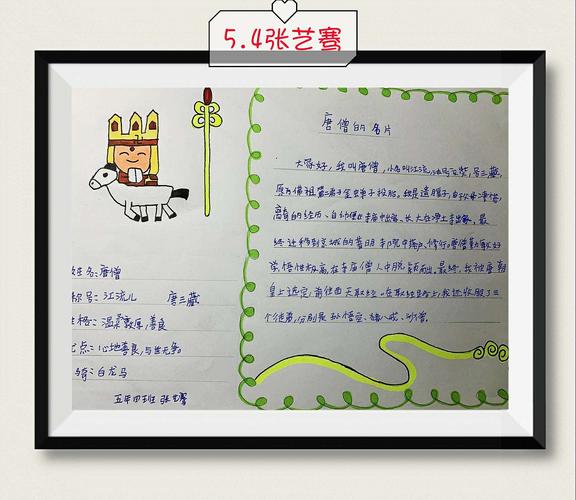 5.4张艺骞
姓名:唐僧
称号:江流儿 唐三藏
性格:温柔敦厚,善良
优点:心地善良,与世无争
坐骑:白龙马
五年四班 张艺骞
唐僧的名片
大家好,我叫唐僧,小名叫江流,法号玄奘,号三藏,
原为佛祖第二弟子金蝉子投胎,我是遗腹子,由于父母凄惨、
离奇的经历,自幼便在寺庙中出家、长大,在净土寺出家,最
终迁移到京城的著名寺院中落户、修行。唐僧勤敏好
学,悟性极高,在寺庙僧人中脱颖而出。最终,我被唐朝
皇上选定,前往西天取经。在取经路上,我还收服了三
个徒弟,分别是孙悟空、猪八戒、沙僧。